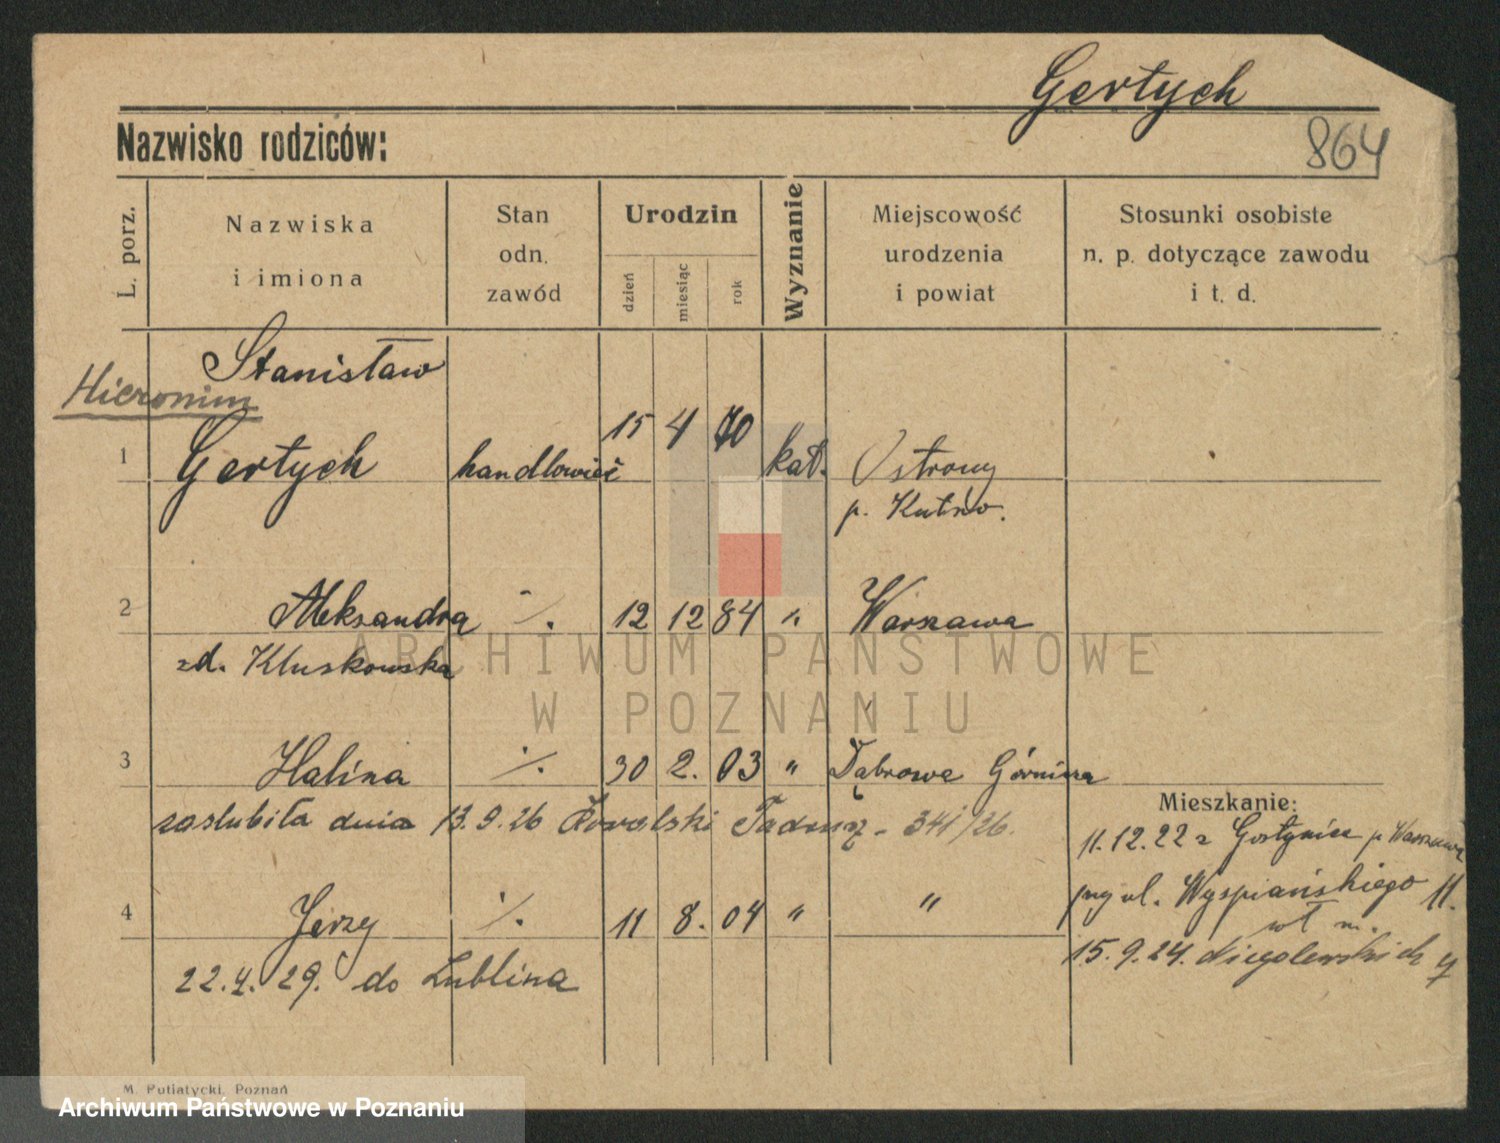 Gertych
864
Nazwisko rodziców:
L. porz.
Nazwiska i imiona
Stan odn. zawód
Urodzin
dzień
miesiąc
rok
Wyznanie
Miejscowość urodzenia i powiat
Stosunki osobiste n. p. dotyczące zawodu i t. d.
Stanisław
Hieronim
1 Gertych handlowiec 15 4 70 kat. Ostrowy
p. Kutno.
2 Aleksandra ·/. 12 12 84 ·/. Warszawa
zd. Kluskowska
3 Halina ·/. 30 2. 03 " Dąbrowa Górnicza
zaślubiła dnia 13.9.26 Kowalski Tadeusz - 341/26.
Mieszkanie:
11.12.22 z Gostynina p Warszawą
przy ul. Wyspiańskiego 11.
wł m.
4 Jerzy ·/. 11 8. 04 " "
15.9.24. Niegolewskich
22.4.29. do Lublina
M. Putiatycki, Poznań
ARCHIWUM PAŃSTWOWE
W POZNANIU
Archiwum Państwowe w Poznaniu